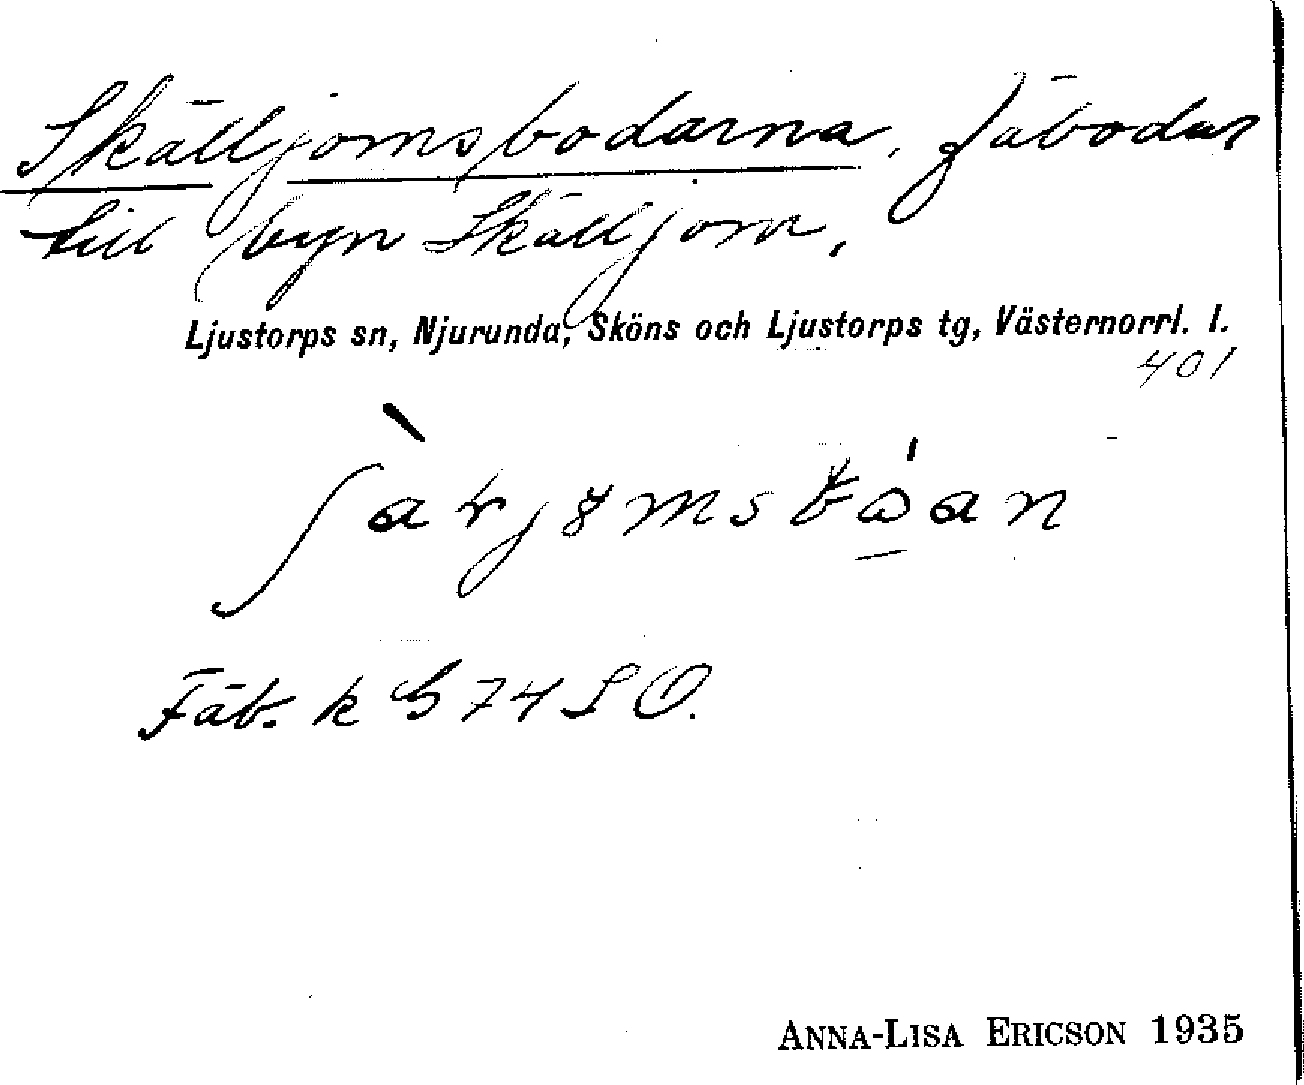 Skälljomsbodarna. Fäbodar
till byn Skälljom.
Ljustorps sn, Njurunda, Sköns och Ljustorps tg, Västernorrl. l.
401
Fäb. k 374 SO.
ANNA-LISA ERICSON 1935